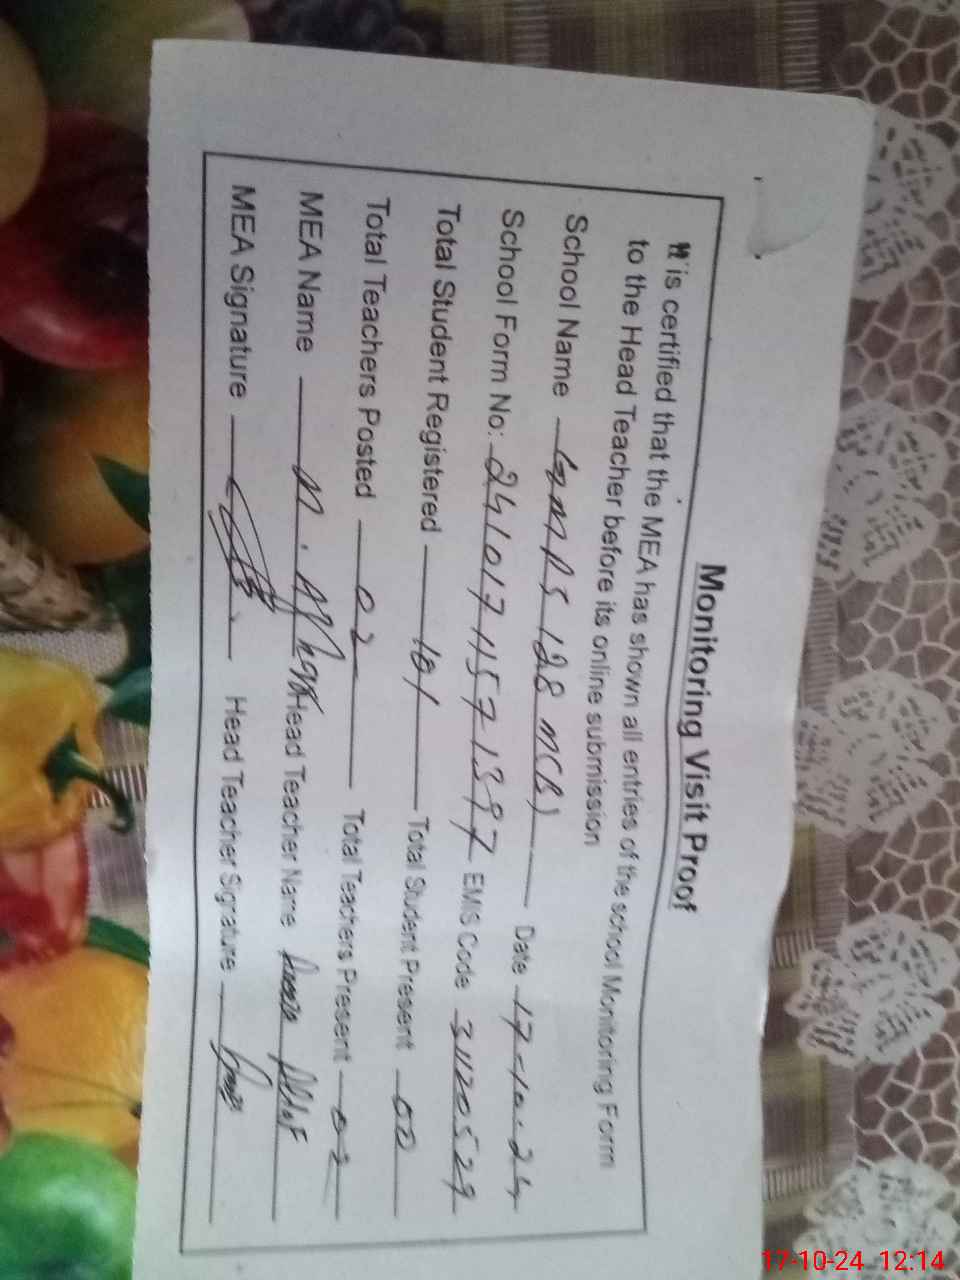 Monitoring Visit Proof
It is certified that the MEA has shown all entries of the school Monitoring Form
to the Head Teacher before its online submission
School Name GMPS 128 MCB) Date 17-10-24
School Form No: 24101711571397 EMIS Code 31120529
Total Student Registered 101 Total Student Present 00
Total Teachers Posted 02 Total Teachers Present 02
MEA Name M. Head Teacher Name Altaf
MEA Signature Head Teacher Signature
17-10-24 12:14